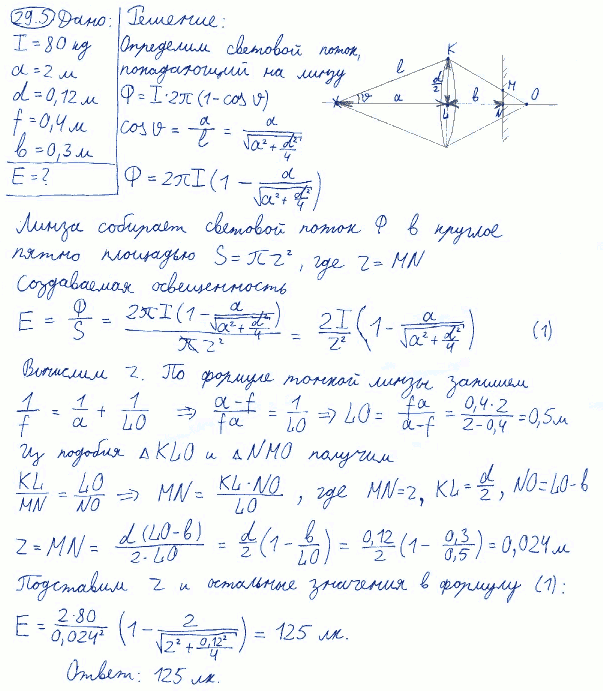 29.5 Дано: Решение:
I = 80 кд
a = 2 м
d = 0,12 м
f = 0,4 м
b = 0,3 м
E = ?
Определим световой поток,
попадающий на линзу
Φ = I · 2π (1 - cos ϑ)
cos ϑ = a/l = a/√(a² + d²/4)
Φ = 2πI (1 - a/√(a² + d²/4))
K
l
d/2
M
ϑ
a
L
b
N
O
Линза собирает световой поток Φ в круглое
пятно площадью S = πr², где r = MN
Создаваемая освещенность
E = Φ/S = 2πI (1 - a/√(a² + d²/4)) / πr² = 2I/r² (1 - a/√(a² + d²/4)) (1)
Вычислим r. По формуле тонкой линзы запишем
1/f = 1/a + 1/LO ⇒ (a-f)/fa = 1/LO ⇒ LO = fa/(a-f) = 0,4·2/(2-0,4) = 0,5 м
Из подобия △KLO и △NMO получим
KL/MN = LO/NO ⇒ MN = KL·NO/LO, где MN = r, KL = d/2, NO = LO - b
r = MN = d(LO-b)/2·LO = d/2 (1 - b/LO) = 0,12/2 (1 - 0,3/0,5) = 0,024 м
Подставим r и остальные значения в формулу (1):
E = 2·80/0,024² (1 - 2/√(2² + 0,12²/4)) = 125 лк.
Ответ: 125 лк.